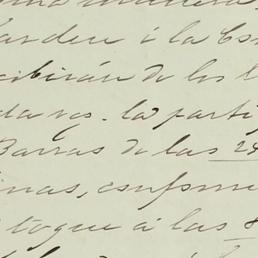 manera
arden á la Es
cibirán de los l
da vez. la parti
Barras de las 24
inas, conforme
toque á las 8